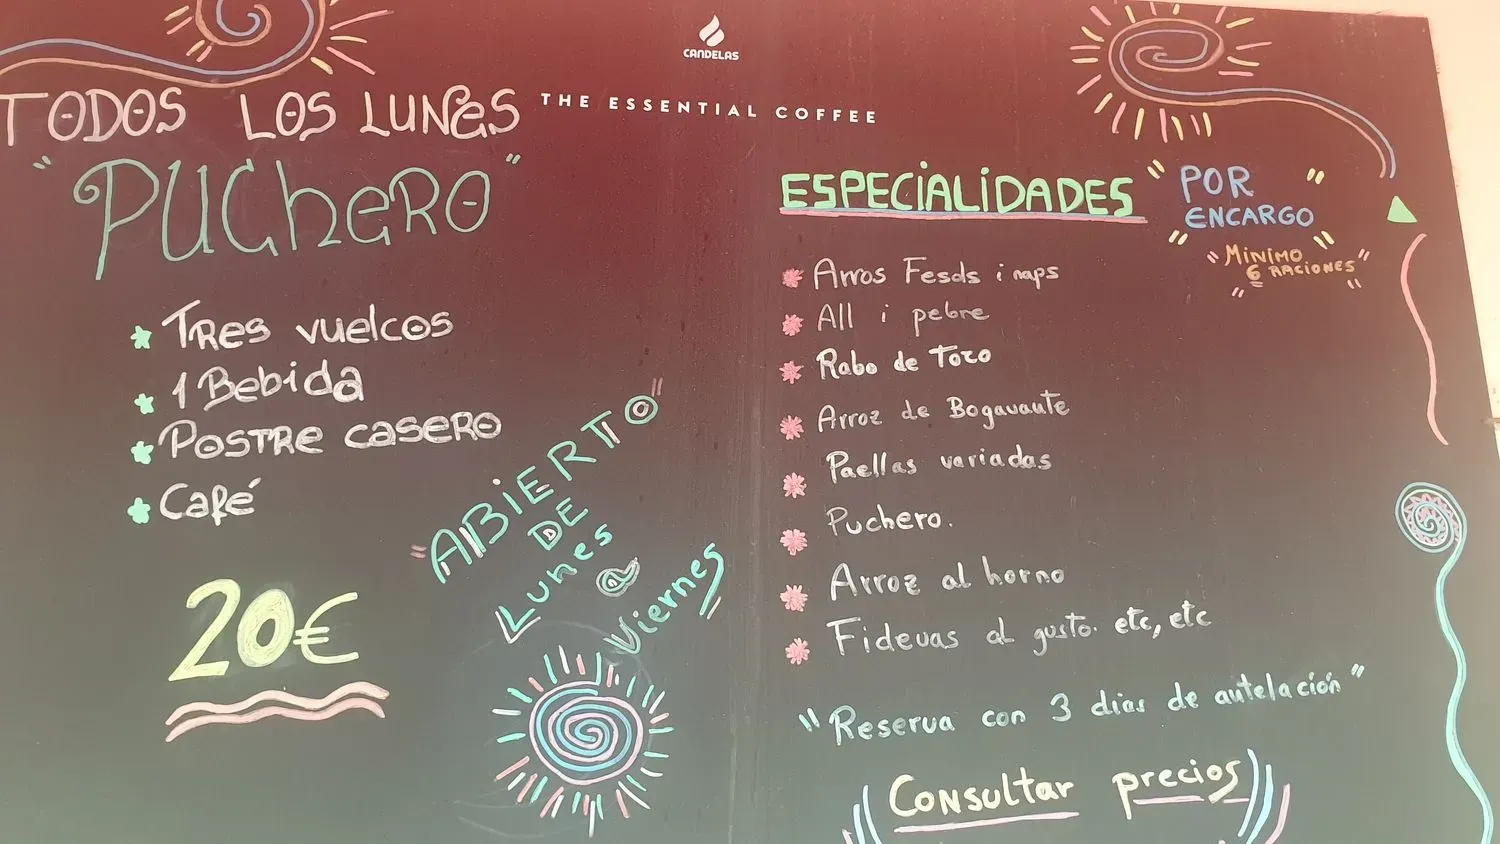 CANDELAS
THE ESSENTIAL COFFEE
TODOS LOS LUNES
"PUCHERO"
Tres vuelcos
1 Bebida
Postre casero
Café
20€
"ABIERTO
DE
Lunes
a
Viernes"
ESPECIALIDADES
"POR
ENCARGO"
"MíNIMO
6 RACIONES"
Arros Fesds i naps
All i pebre
Rabo de Toro
Arroz de Bogavante
Paellas variadas
Puchero.
Arroz al horno
Fideuas al gusto. etc, etc
"Reserva con 3 dias de autelación"
Consultar precios